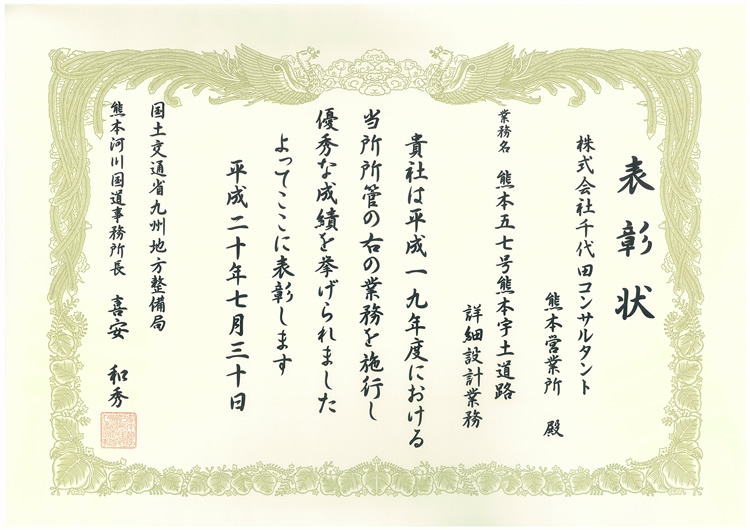 表彰状
株式会社千代田コンサルタント
熊本営業所 殿
業務名 熊本五七号熊本宇土道路
詳細設計業務
貴社は平成一九年度における
当所所管の右の業務を施行し
優秀な成績を挙げられました
よってここに表彰します
平成二十年七月三十日
国土交通省九州地方整備局
熊本河川国道事務所長 喜安 和秀